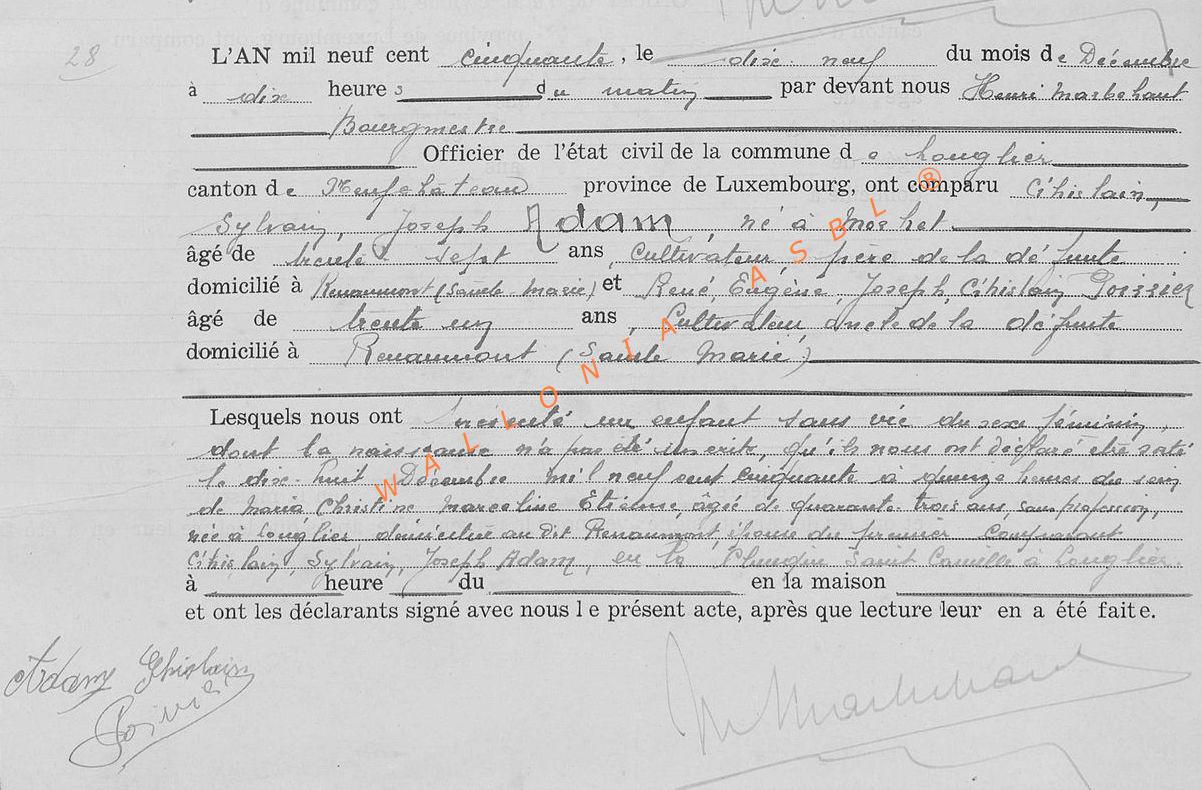 28
L'AN mil neuf cent cinquante, le dix neuf du mois de Décembre
à dix heures du matin par devant nous Henri Marbehant
Bourgmestre
Officier de l'état civil de la commune de Longlier
canton de Neufchâteau province de Luxembourg, ont comparu Ghislain,
Sylvain, Joseph Adam, né à Morhet
âgé de trente-sept ans, Cultivateur, père de la défunte
domicilié à Renaumont (Sainte-Marie) et René, Eugène, Joseph, Ghislain
âgé de trente un ans, Cultivateur, oncle de la défunte
domicilié à Renaumont (Sainte Marie)
Lesquels nous ont présenté un enfant sans vie du sexe féminin,
dont la naissance n'a pas été inscrite, qu'ils nous ont déclaré être
le dix-huit Décembre mil neuf cent cinquante à quinze heures du sein
de Maria Christine Marceline Etienne, âgée de quarante-trois ans, sans profession,
née à Longlier domiciliée au dit Renaumont, épouse du premier comparant
Ghislain, Sylvain, Joseph Adam, en la Saint Camille à Longlier.
à heure du en la maison
et ont les déclarants signé avec nous le présent acte, après que lecture leur en a été faite.
Adam Ghislain
WALLONIA ASBL ®